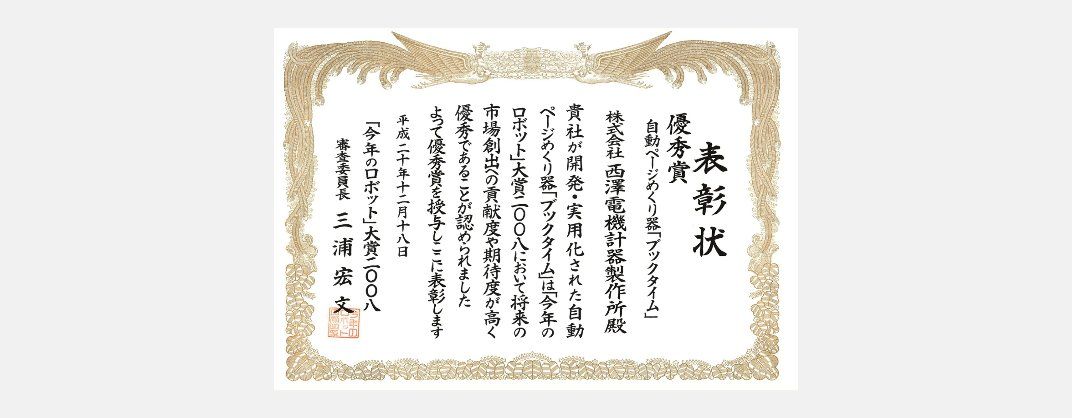 表彰状
優秀賞
自動ページめくり器「ブックタイム」
株式会社 西澤電機計器製作所殿
貴社が開発・実用化された自動
ページめくり器「ブックタイム」は「今年の
ロボット」大賞二〇〇八において将来の
市場創出への貢献度や期待度が高く
優秀であることが認められました
よって優秀賞を授与しここに表彰します
平成二十年十二月十八日
「今年のロボット」大賞二〇〇八
審査委員長 三浦宏文